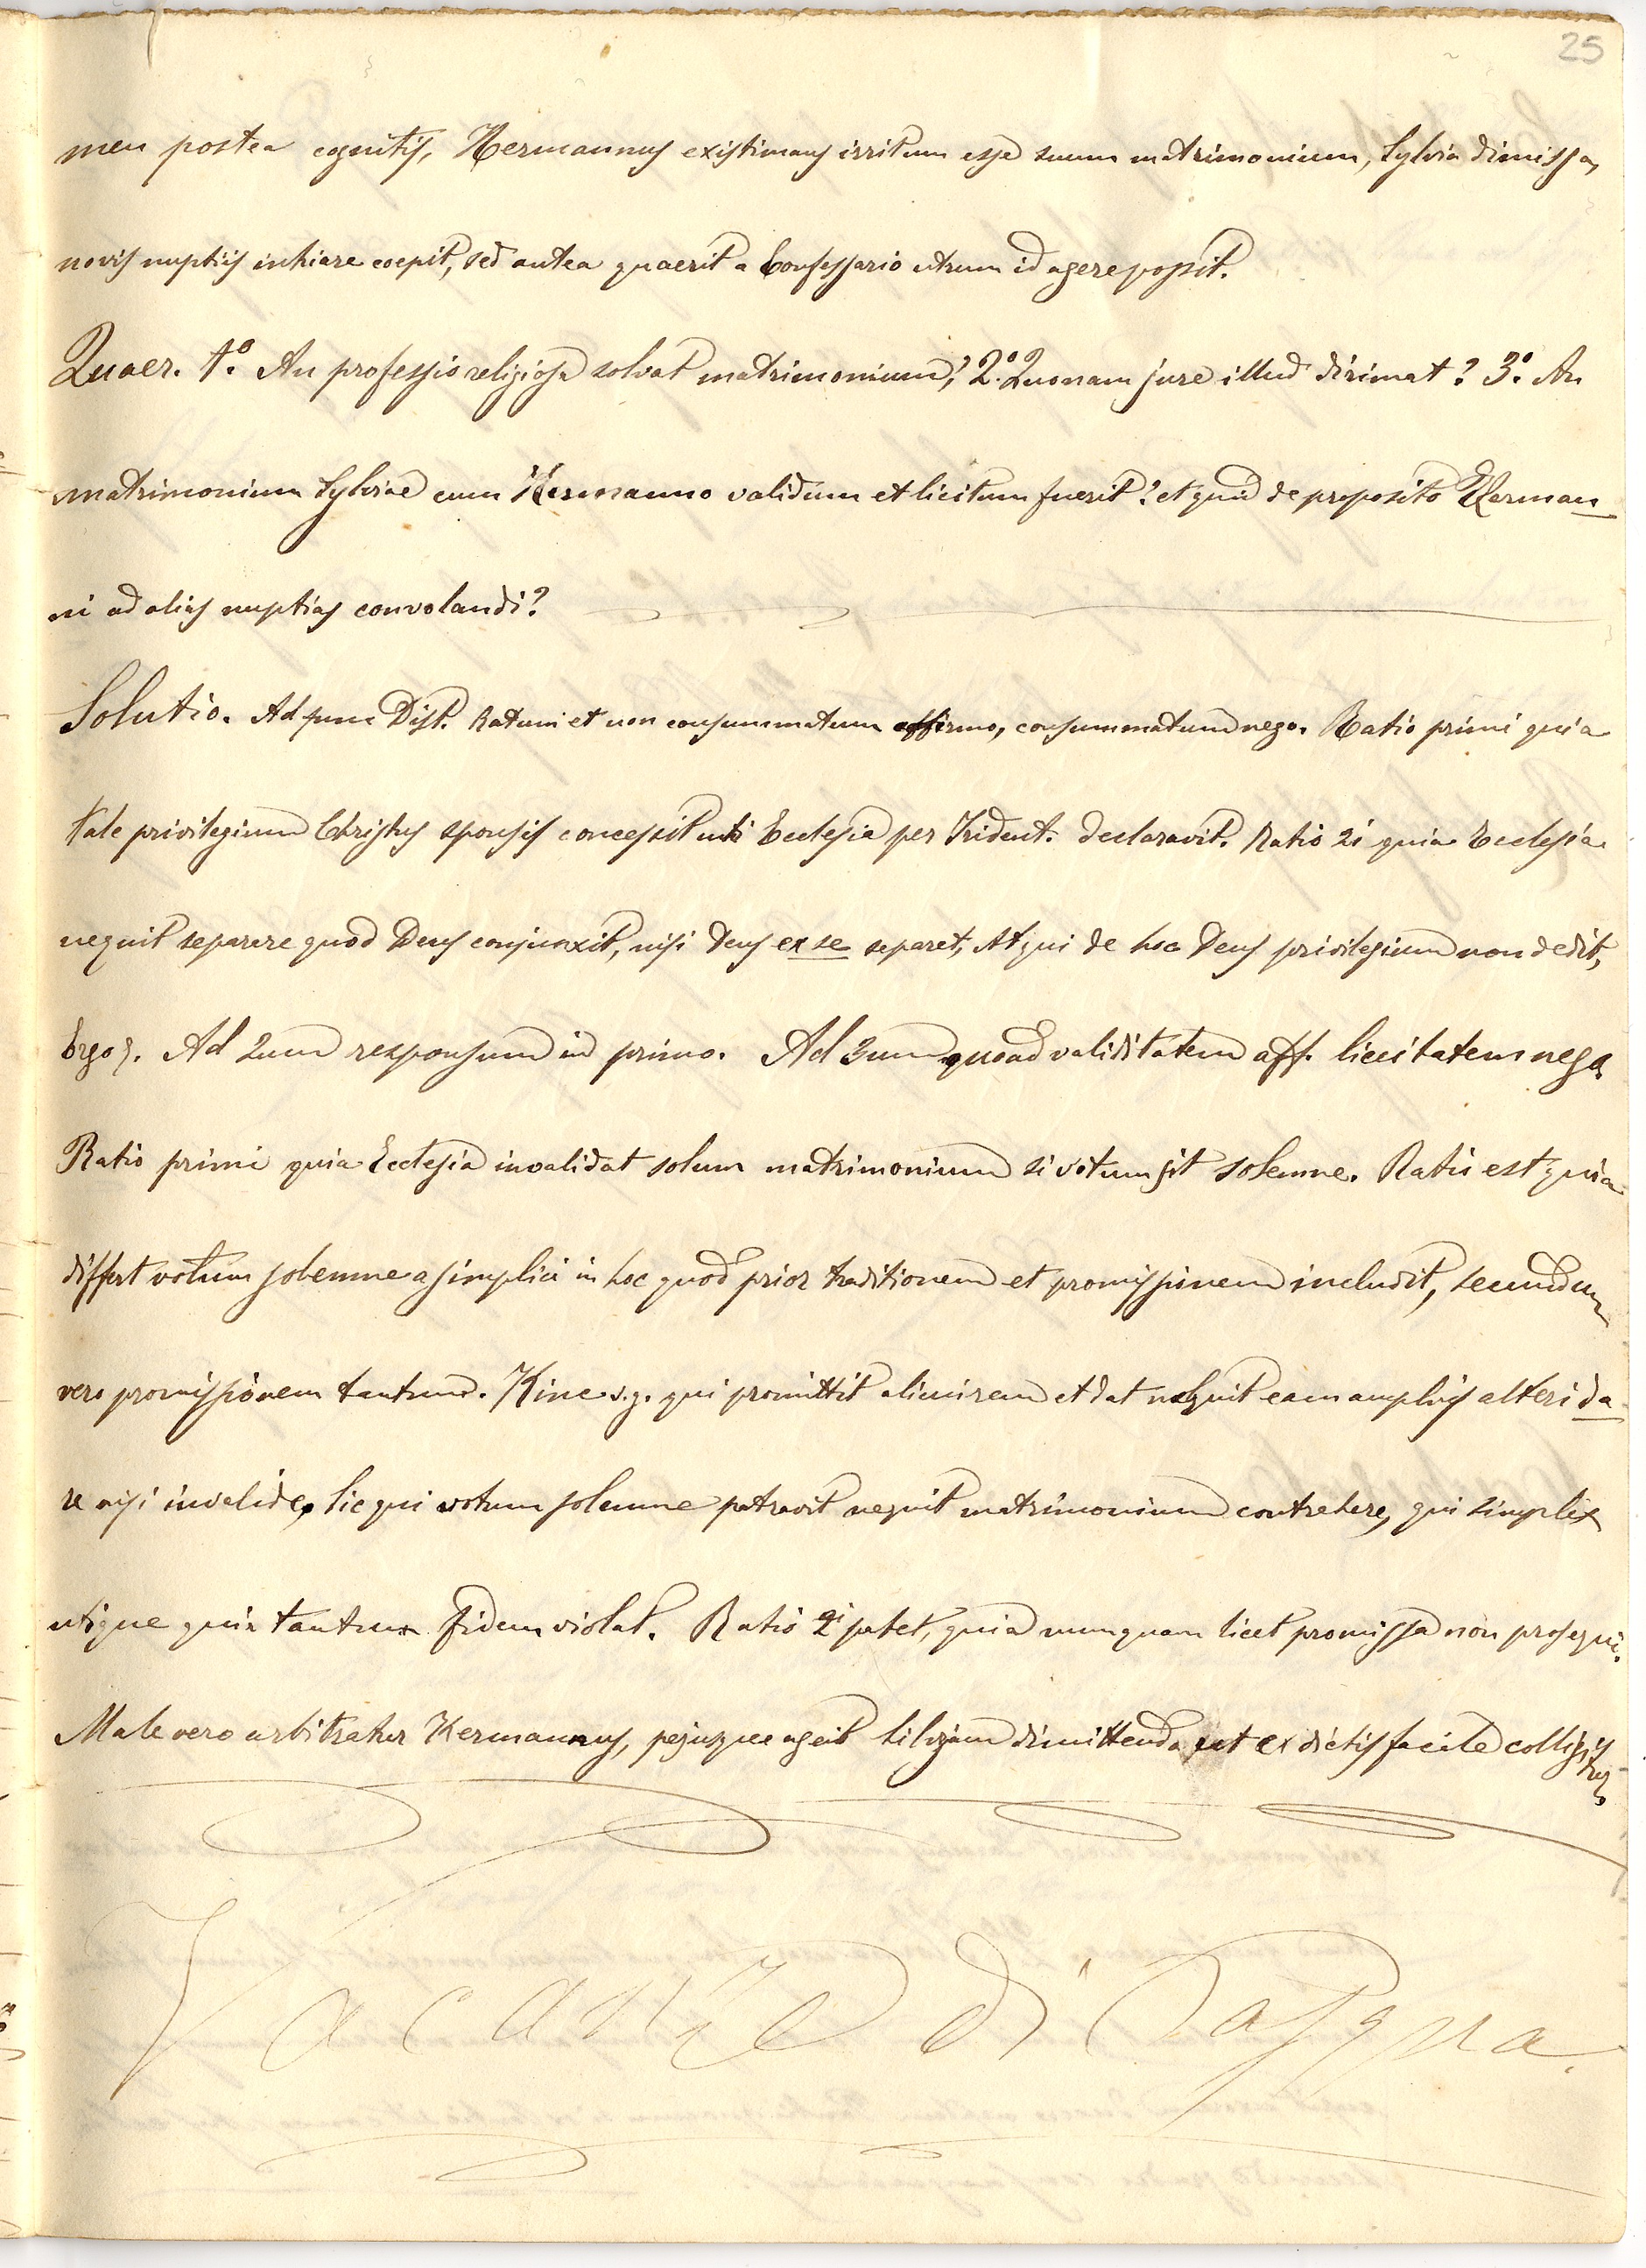 25
men postea cognitis, Hermannus existimans irritum esse suum matrimonium, Sylvia dimissa,
novis nuptiis inhiare coepit, sed antea quaerit a Confessario utrum id agere possit.
Quaer. 1º. An professio religiosa solvat matrimonium? 2º. Quonam jure illud dirimat? 3º. An
matrimonium Sylviae cum Hermanno validum et licitum fuerit? et quid de proposito Herman
ni ad alias nuptias convolandi?
Solutio. Ad pum Dist. Ratum et non consummatum affirmo, consummatum nego. Ratio primi quia
tale privilegium Christus sponsis concessit uti Ecclesia per Trident. declaravit. Ratio 2i quia Ecclesia
nequit separare quod Deus conjunxit, nisi Deus ex se separet, Atqui de hoc Deus privilegium non dedit,
Ergo. Ad 2um responsum in primo. Ad 3um quoad validitatem aff. liceitatem nego
Ratio primi quia Ecclesia invalidat solum matrimonium si votum sit solemne. Ratio est quia
differt votum solemne a simplici in hoc quod prior traditionem et promissionem includit, secundum
vero promissionem tantum. Hinc v.g. qui promittit alicui rem et dat nequit eam amplius alteri da
re nisi invalide, sic qui votum solemne patravit nequit matrimonium contrahere, qui simplex
utique quia tantum fidem violat. Ratio 2i patet, quia numquam licet promissa non prosequi.
Male vero arbitratur Hermannus, pejusque ageit Silviam dimittendo, ut ex dictis facile colligitur.
Vacanze di Pasqua.